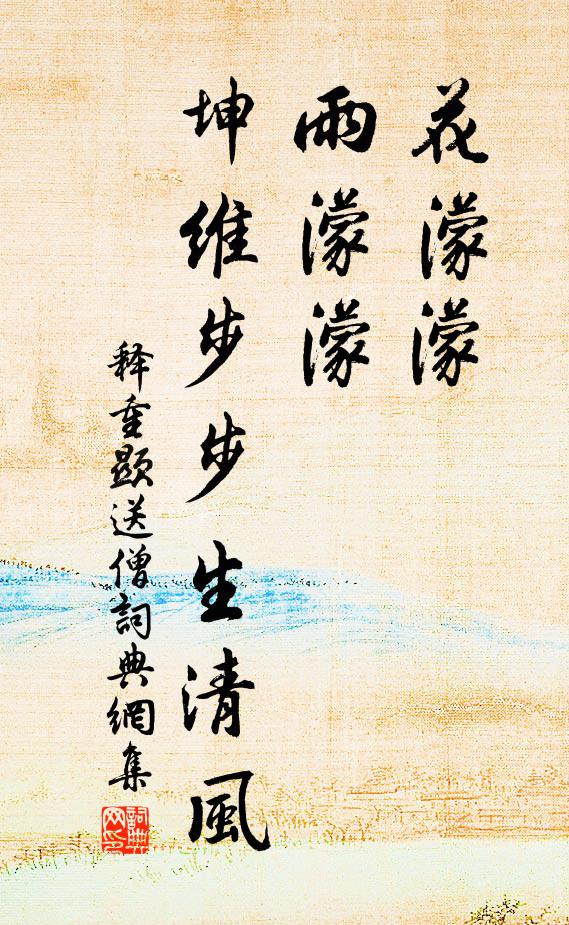 花濛濛
雨濛濛
坤維步步生清風
釋重顯送僧詞典網集
詞典
网印